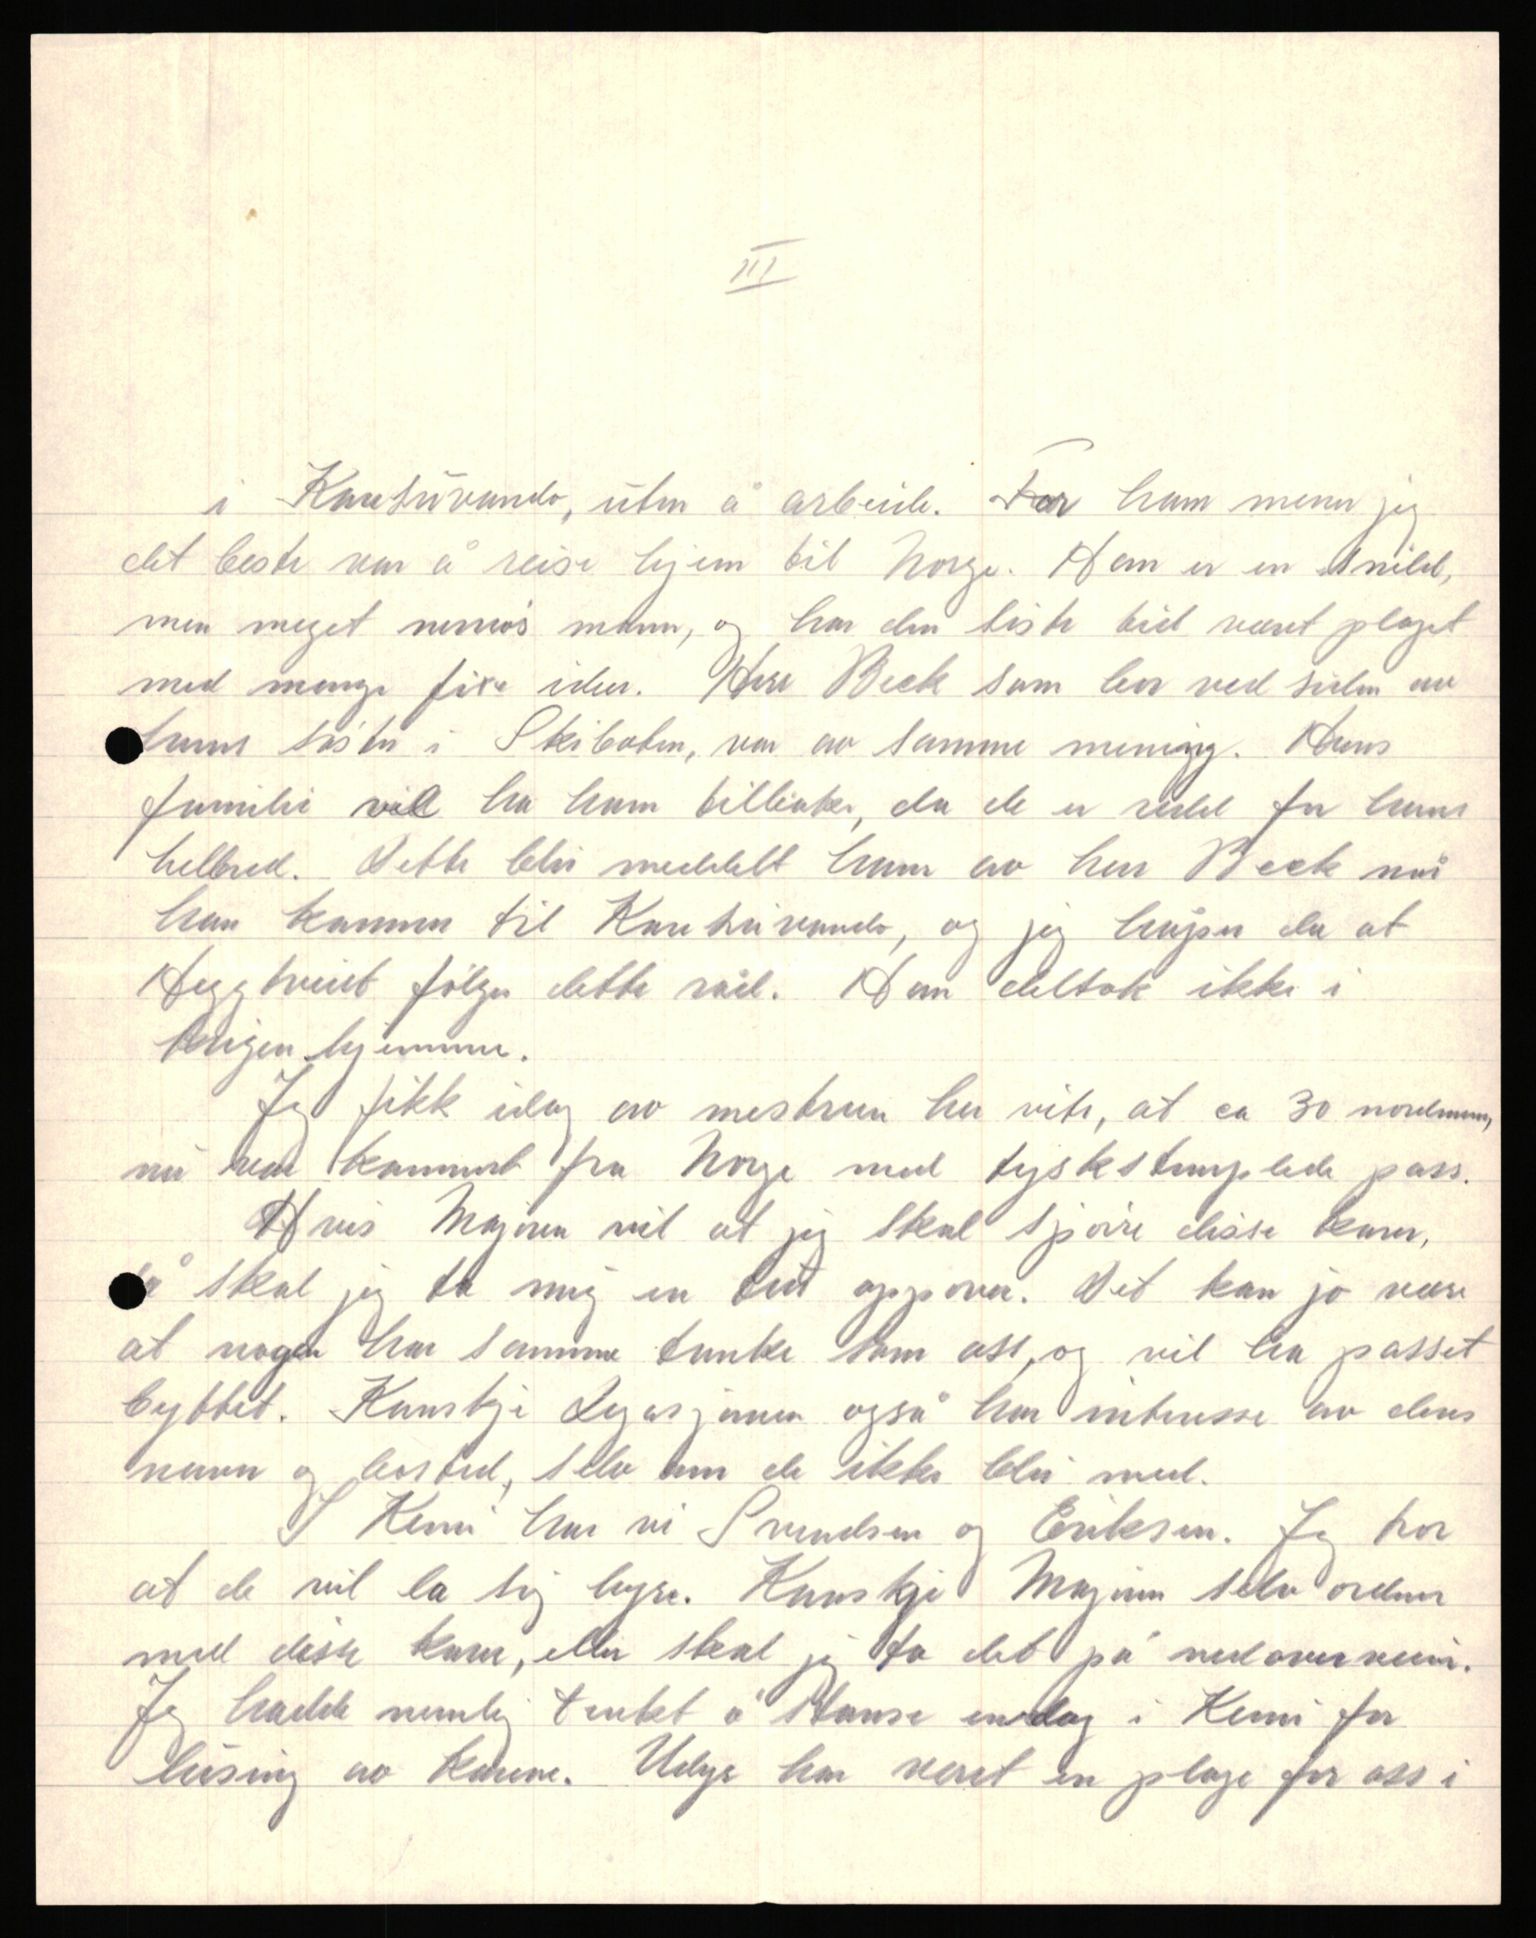 III
i Karesuvando, uten å arbeide. For ham mener jeg
det beste var å reise hjem til Norge. Han er en snild,
men meget nervøs mann, og har den siste tid været plaget
med mange fixe ideer. Herr Beck som bor ved siden av
hans søster i Skibotn, var av samme mening. Hans
familie vil ha ham tilbake, da de er redd for hans
helbred. Dette blir meddelt ham av herr Beck når
han kommer til Karesuvando, og jeg håper da at
Heggtveit følger dette råd. Han deltok ikke i
krigen hjemme.
Jeg fikk idag av mestren her vite, at ca 30 nordmenn,
nu var kommet fra Norge med tyskstemplede pass.
Hvis Majoren vil at jeg skal spørre disse karer,
så skal jeg ta mig en tur oppover. Det kan jo være
at nogen har samme tanke som oss, og vil ha passet
byttet. Kanskje Legasjonen også har interesse av deres
navn og bosted, selv om de ikke blir med.
I Kemi har vi Svendsen og Eriksen. Jeg tror
at de vil la sig hyre. Kanskje Majoren selv ordner
med disse karer, eller skal jeg ta det på nedoverveien.
Jeg hadde nemlig tenkt å stanse en dag i Kemi for
lusing av karene. Udyr har været en plage for oss i